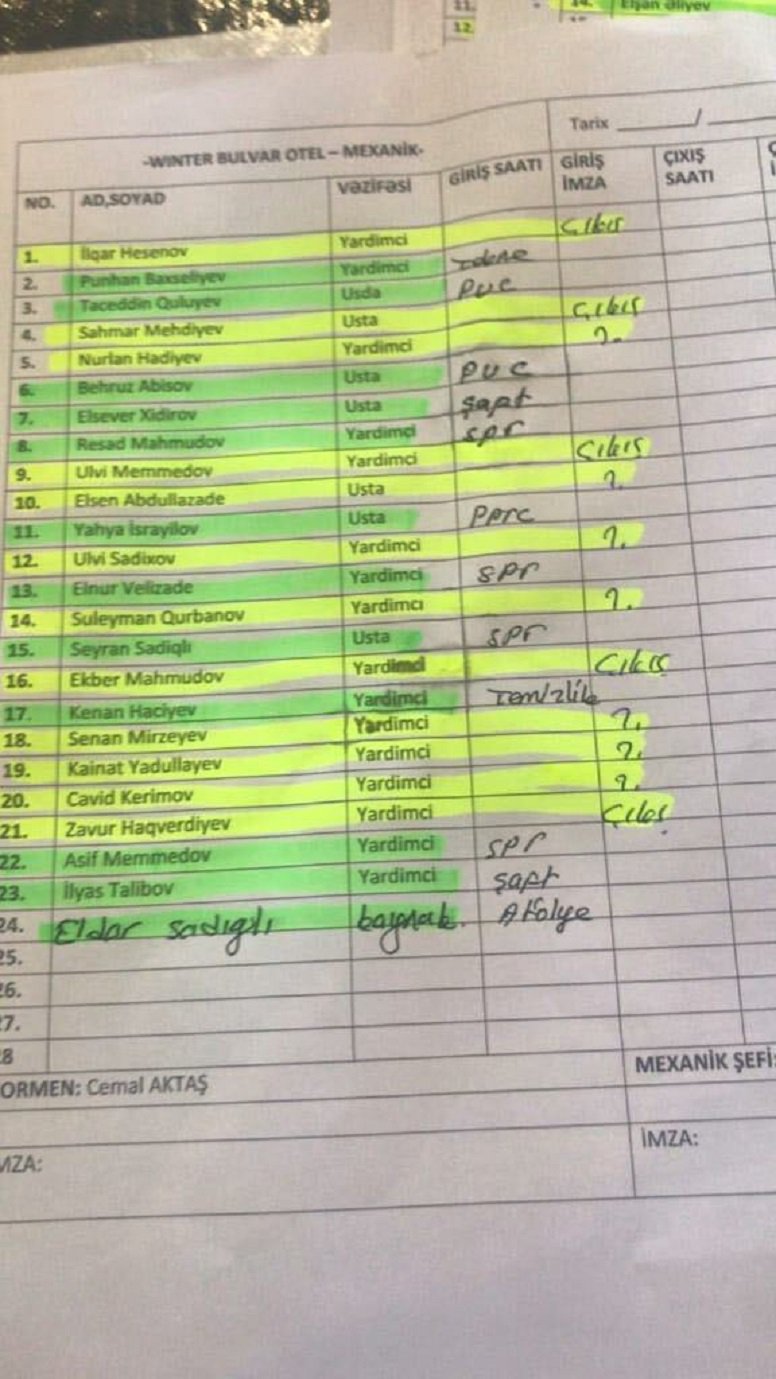 11.
12.
14. Elşən Əliyev
-WINTER BULVAR OTEL – MEXANİK- Tarix ____/____
NO. AD,SOYAD VəZİFəSİ GİRİŞ SAATI GİRİŞ İMZA ÇIXIŞ SAATI
1. İlqar Hesenov Yardimci Çıkış
2. Punhan Baxseliyev Yardimci
3. Taceddin Quluyev Usda PVC
4. Sahmar Mehdiyev Usta Çıkış
5. Nurlan Hadiyev Yardimci ?.
6. Behruz Abisov Usta PVC
7. Elsever Xidirov Usta şapt
8. Resad Mahmudov Yardimci spr
9. Ulvi Memmedov Yardimci Çıkış
10. Elsen Abdullazade Usta ?.
11. Yahya İsrayilov Usta pprc
12. Ulvi Sadixov Yardimci ?.
13. Elnur Velizade Yardimci spr
14. Suleyman Qurbanov Yardimci ?.
15. Seyran Sadiqlı Usta spr
16. Ekber Mahmudov Yardimci Çıkış
17. Kenan Haciyev Yardimci Temizlik
18. Senan Mirzeyev Yardimci ?.
19. Kainat Yadullayev Yardimci ?.
20. Cavid Kerimov Yardimci ?.
21. Zavur Haqverdiyev Yardimci Çıkış
22. Asif Memmedov Yardimci spr
23. İlyas Talibov Yardimci şapt
24. Eldar sadıgılı baynak. Atolye
25.
26.
27.
28
ORMEN: Cemal AKTAŞ MEXANİK ŞEFİ:
MZA: İMZA: